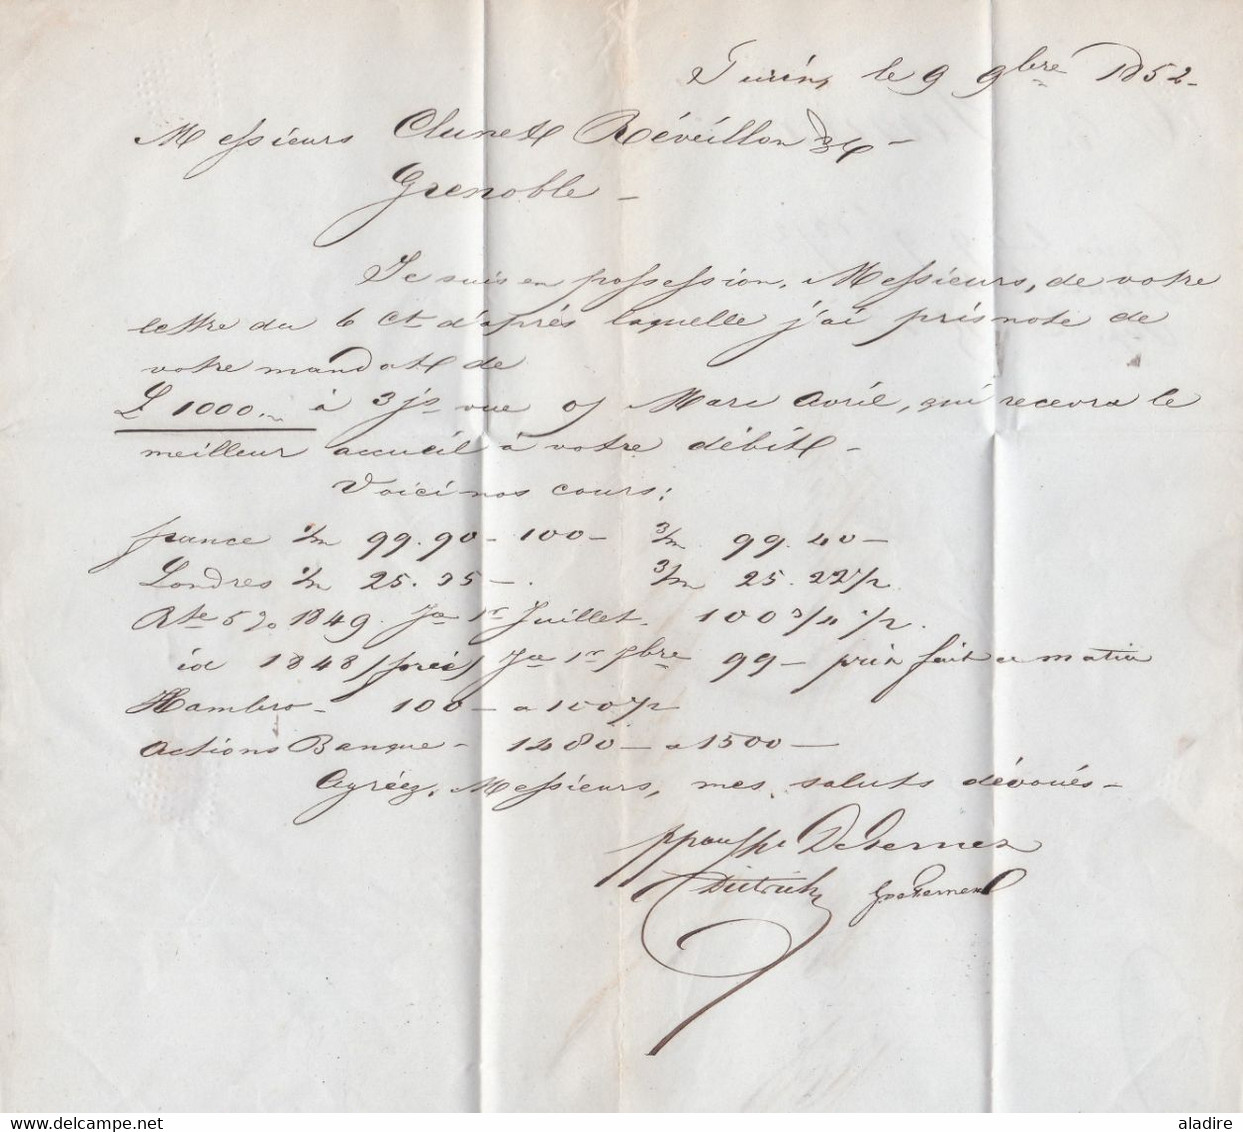 Turin, le 9 9bre 1852-
Messieurs Clunet Réveillon & C -
Grenoble -
Je suis en possession, Messieurs, de votre
lettre du 6 ct d'après laquelle j'ai pris note de
votre mandat de
£ 1000.- à 3 js vue s/ Marc Avril, qui recevra le
meilleur accueil à votre débit -
Voici nos cours:
france 1/m 99.90 - 100 - 3/m 99.40 -
Londres 1/m 25.35 -. 3/m 25.22 1/2.
Rte 5% 1849. Jce 1r Juillet. 100 3/4 1/2.
id 1848 Jce 1r 7bre 99 - prix fait ce matin
Hambro - 100 - a 100 1/2
Actions Banque - 1480 - a 1500 -
Agréez, Messieurs, mes saluts dévoués -
Defernex
Dietrich Gve Defernex
delcampe.net
aladire